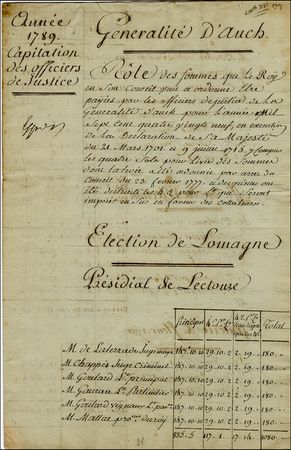 Année
1789.
Capitation
des officiers
de Justice
Généralité D'Auch.
Rôle des sommes que Le Roy
en Son Conseil veut et ordonne être
payées par les officiers de justice de la
Généralité d'auch pour l'année Mil
Sept Cent quatre vingts neuf, en execution
de la Declaration de Sa Majesté
du 21. Mars. 1701. et 9. juillet 1715. y compris
les quatre Sols pour Livre des Sommes
dont la levée a été ordonnée par arret
du Conseil du 23. fevrier 1777. desquelles ont
été déduits les 4 d. pour L. qui Seront
imposés en Sus en faveur des collecteurs.
Election de Lomagne
Présidial de Lectoure
Principal 4 s. p. L. 4 d. p. L. Total
M. de Juge mage 147. 10. 10 29. 10. 2 2. 19. 180
M. Chappès Juge Criminel 147. 10. 10 29. 10. 2 2. 19. 180
M. Goulard Lt. principal 147. 10. 10 29. 10. 2 2. 19. 180
M. Gauran Lt. Particulier 147. 10. 10 29. 10. 2 2. 19. 180
M. Goulard 147. 10. 10 29. 10. 2 2. 19. 180
M. Mallac pro.r du roy 147. 10. 10 29. 10. 2 2. 19. 180
885. 5 177. 1 17. 14 1080